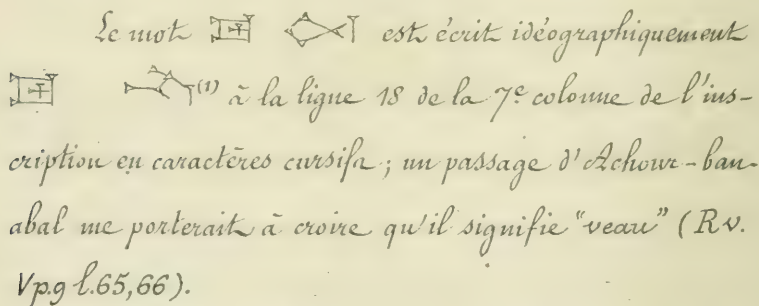 Le mot est écrit idéographiquement
(1) à la ligne 18 de la 7e colonne de l'ins-
cription en caractères cursifs ; un passage d'Achour-ban-
abal me porterait à croire qu'il signifie "veau" (R v.
V p.9 l.65,66).